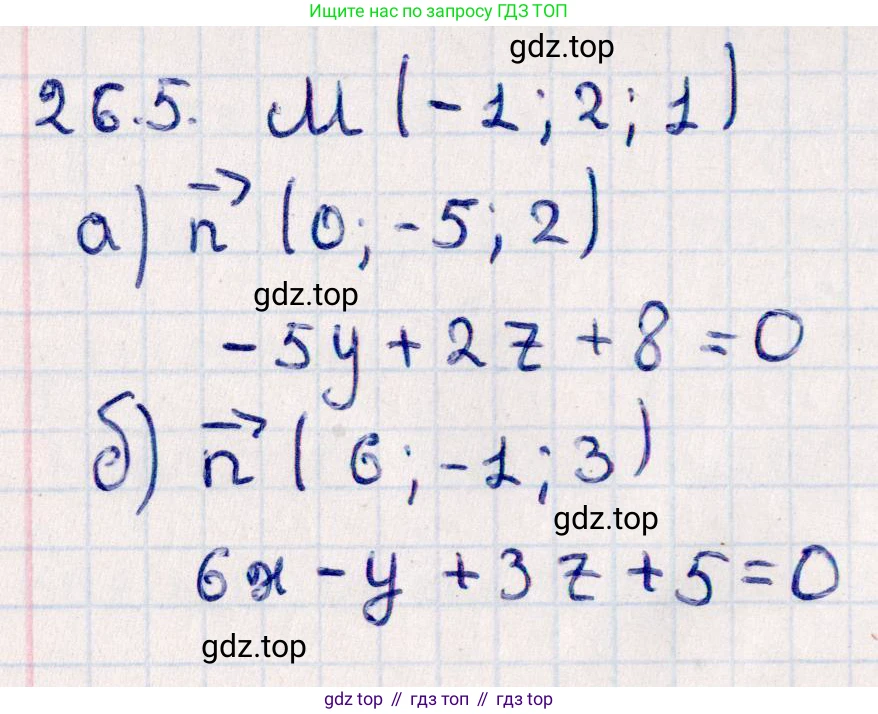 Ищите нас по запросу ГДЗ ТОП
gdz.top
26.5. M (-1; 2; 1)
а) n⃗ (0; -5; 2)
gdz.top
-5y + 2z + 8 = 0
б) n⃗ (6; -1; 3)
gdz.top
6x - y + 3z + 5 = 0
gdz.top
gdz top // гдз топ // гдз top